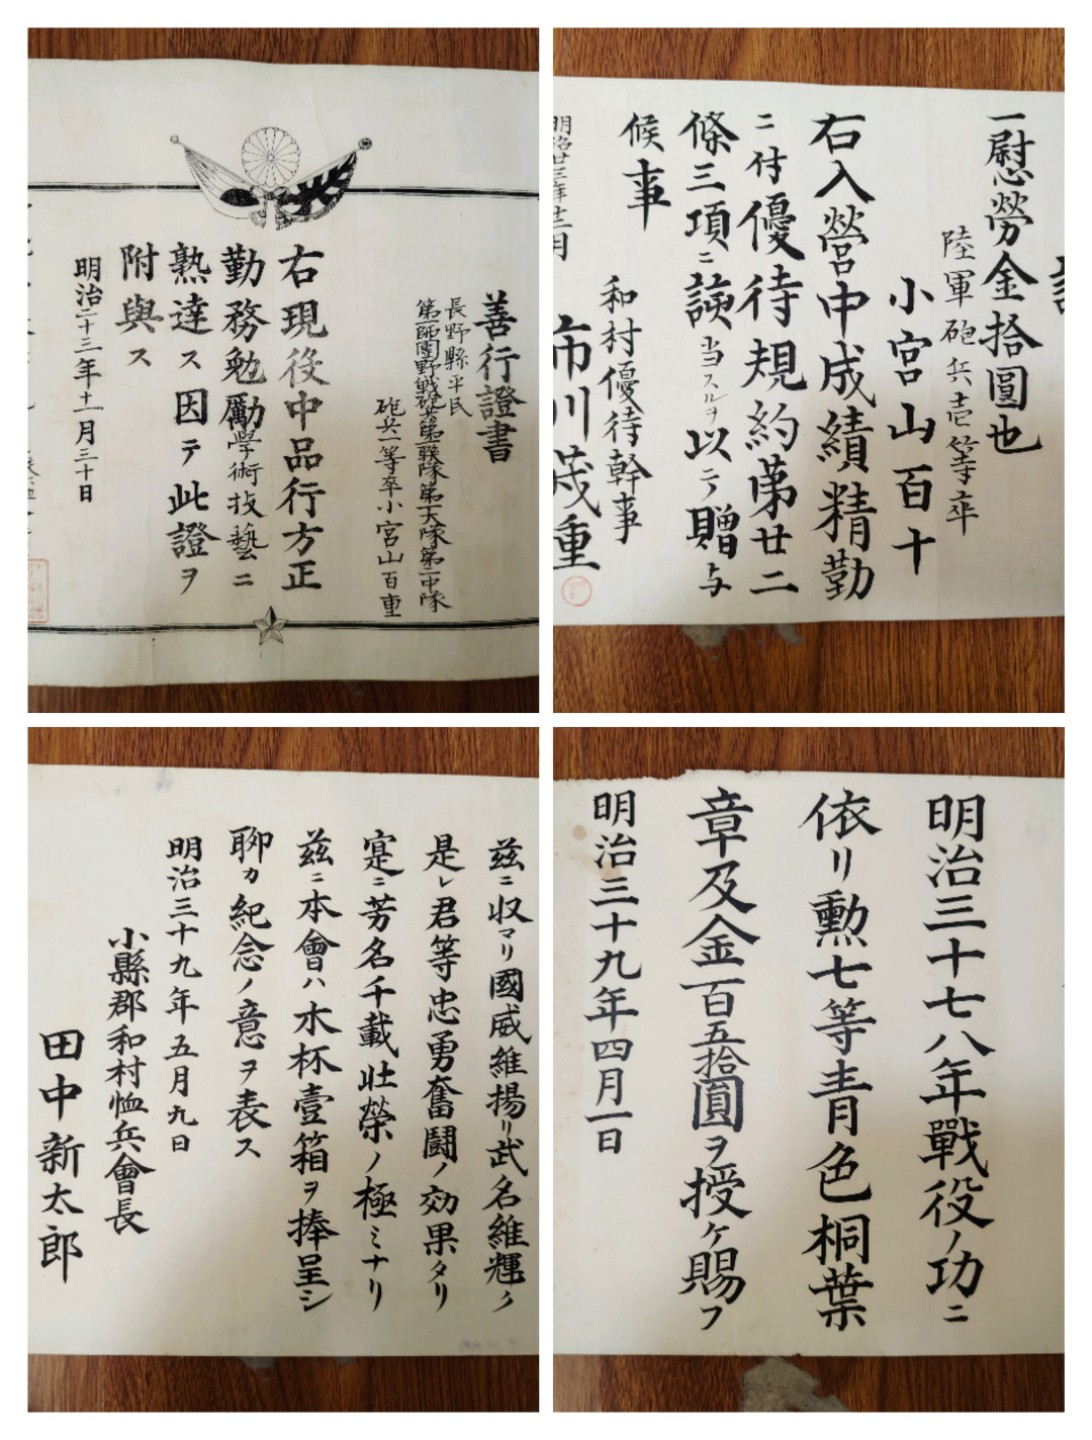 善行證書
長野縣平民
第一師團野戰砲兵第一聯隊第一大隊第二中隊
砲兵一等卒小宮山百重
右現役中品行方正
勤務勉勵學術技藝ニ
熟達ス因テ此證ヲ
附與ス
明治二十三年十一月三十日
一慰勞金拾圓也
陸軍砲兵壱等卒
小宮山百十
右入營中成績精勤
ニ付優待規約第廿二
條三項ニ該当スルヲ以テ贈与
候事
明治廿三年十二月
和村優待幹事
市川茂重
茲ニ収マリ國威維揚リ武名維輝ク
是レ君等忠勇奮闘ノ効果タリ
寔ニ芳名千載壮榮ノ極ミナリ
茲ニ本會ハ木杯壹箱ヲ捧呈シ
聊カ紀念ノ意ヲ表ス
明治三十九年五月九日
小縣郡和村恤兵會長
田中新太郎
明治三十七八年戰役ノ功ニ
依リ勲七等青色桐葉
章及金百五拾圓ヲ授ケ賜フ
明治三十九年四月一日